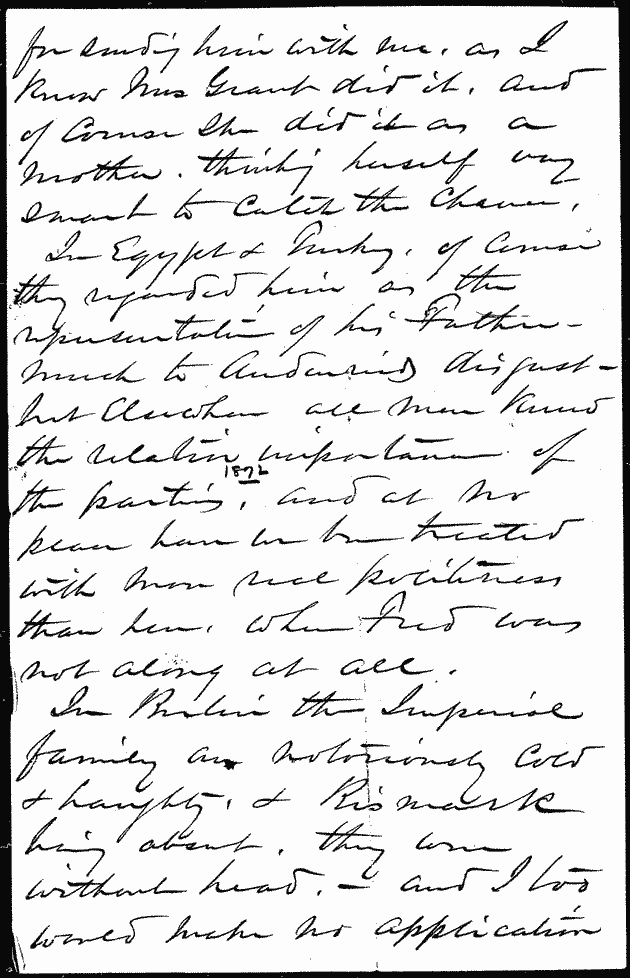 for sending him with me. as I
know Mrs Grant did it. and
of Course She did it as a
mother. thinking herself very
smart to Catch the Chance.
In Egypt & Turkey, of Course
they regarded him as the
representative of his Father -
much to Audenrieds disgust -
but Elsewhere all men knew
the relative importance of
1872
the parties, and at no
place have we been treated
with more real politeness
than here, when Fred was
not along at all.
In Berlin the Imperial
family are notoriously Cold
& haughty, & Bismark
being absent, they were
without head. - and I too
would make no application